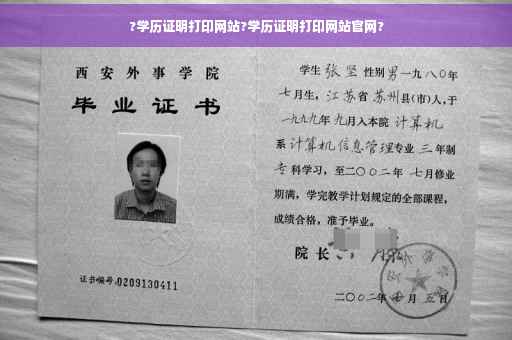 ?学历证明打印网站?学历证明打印网站官网?
西安外事学院
毕业证书
证书编号:0209130411
学生 张坚 性别 男 一九八〇年
七月生，江苏省 苏州县(市)人，于
一九九九年 九月入本院 计算机
系 计算机信息管理专业 三 年制
专 科学习，至二〇〇二年 七月修业
期满，学完教学计划规定的全部课程，
成绩合格，准予毕业。
院 长
二〇〇二年 七 月 五 日